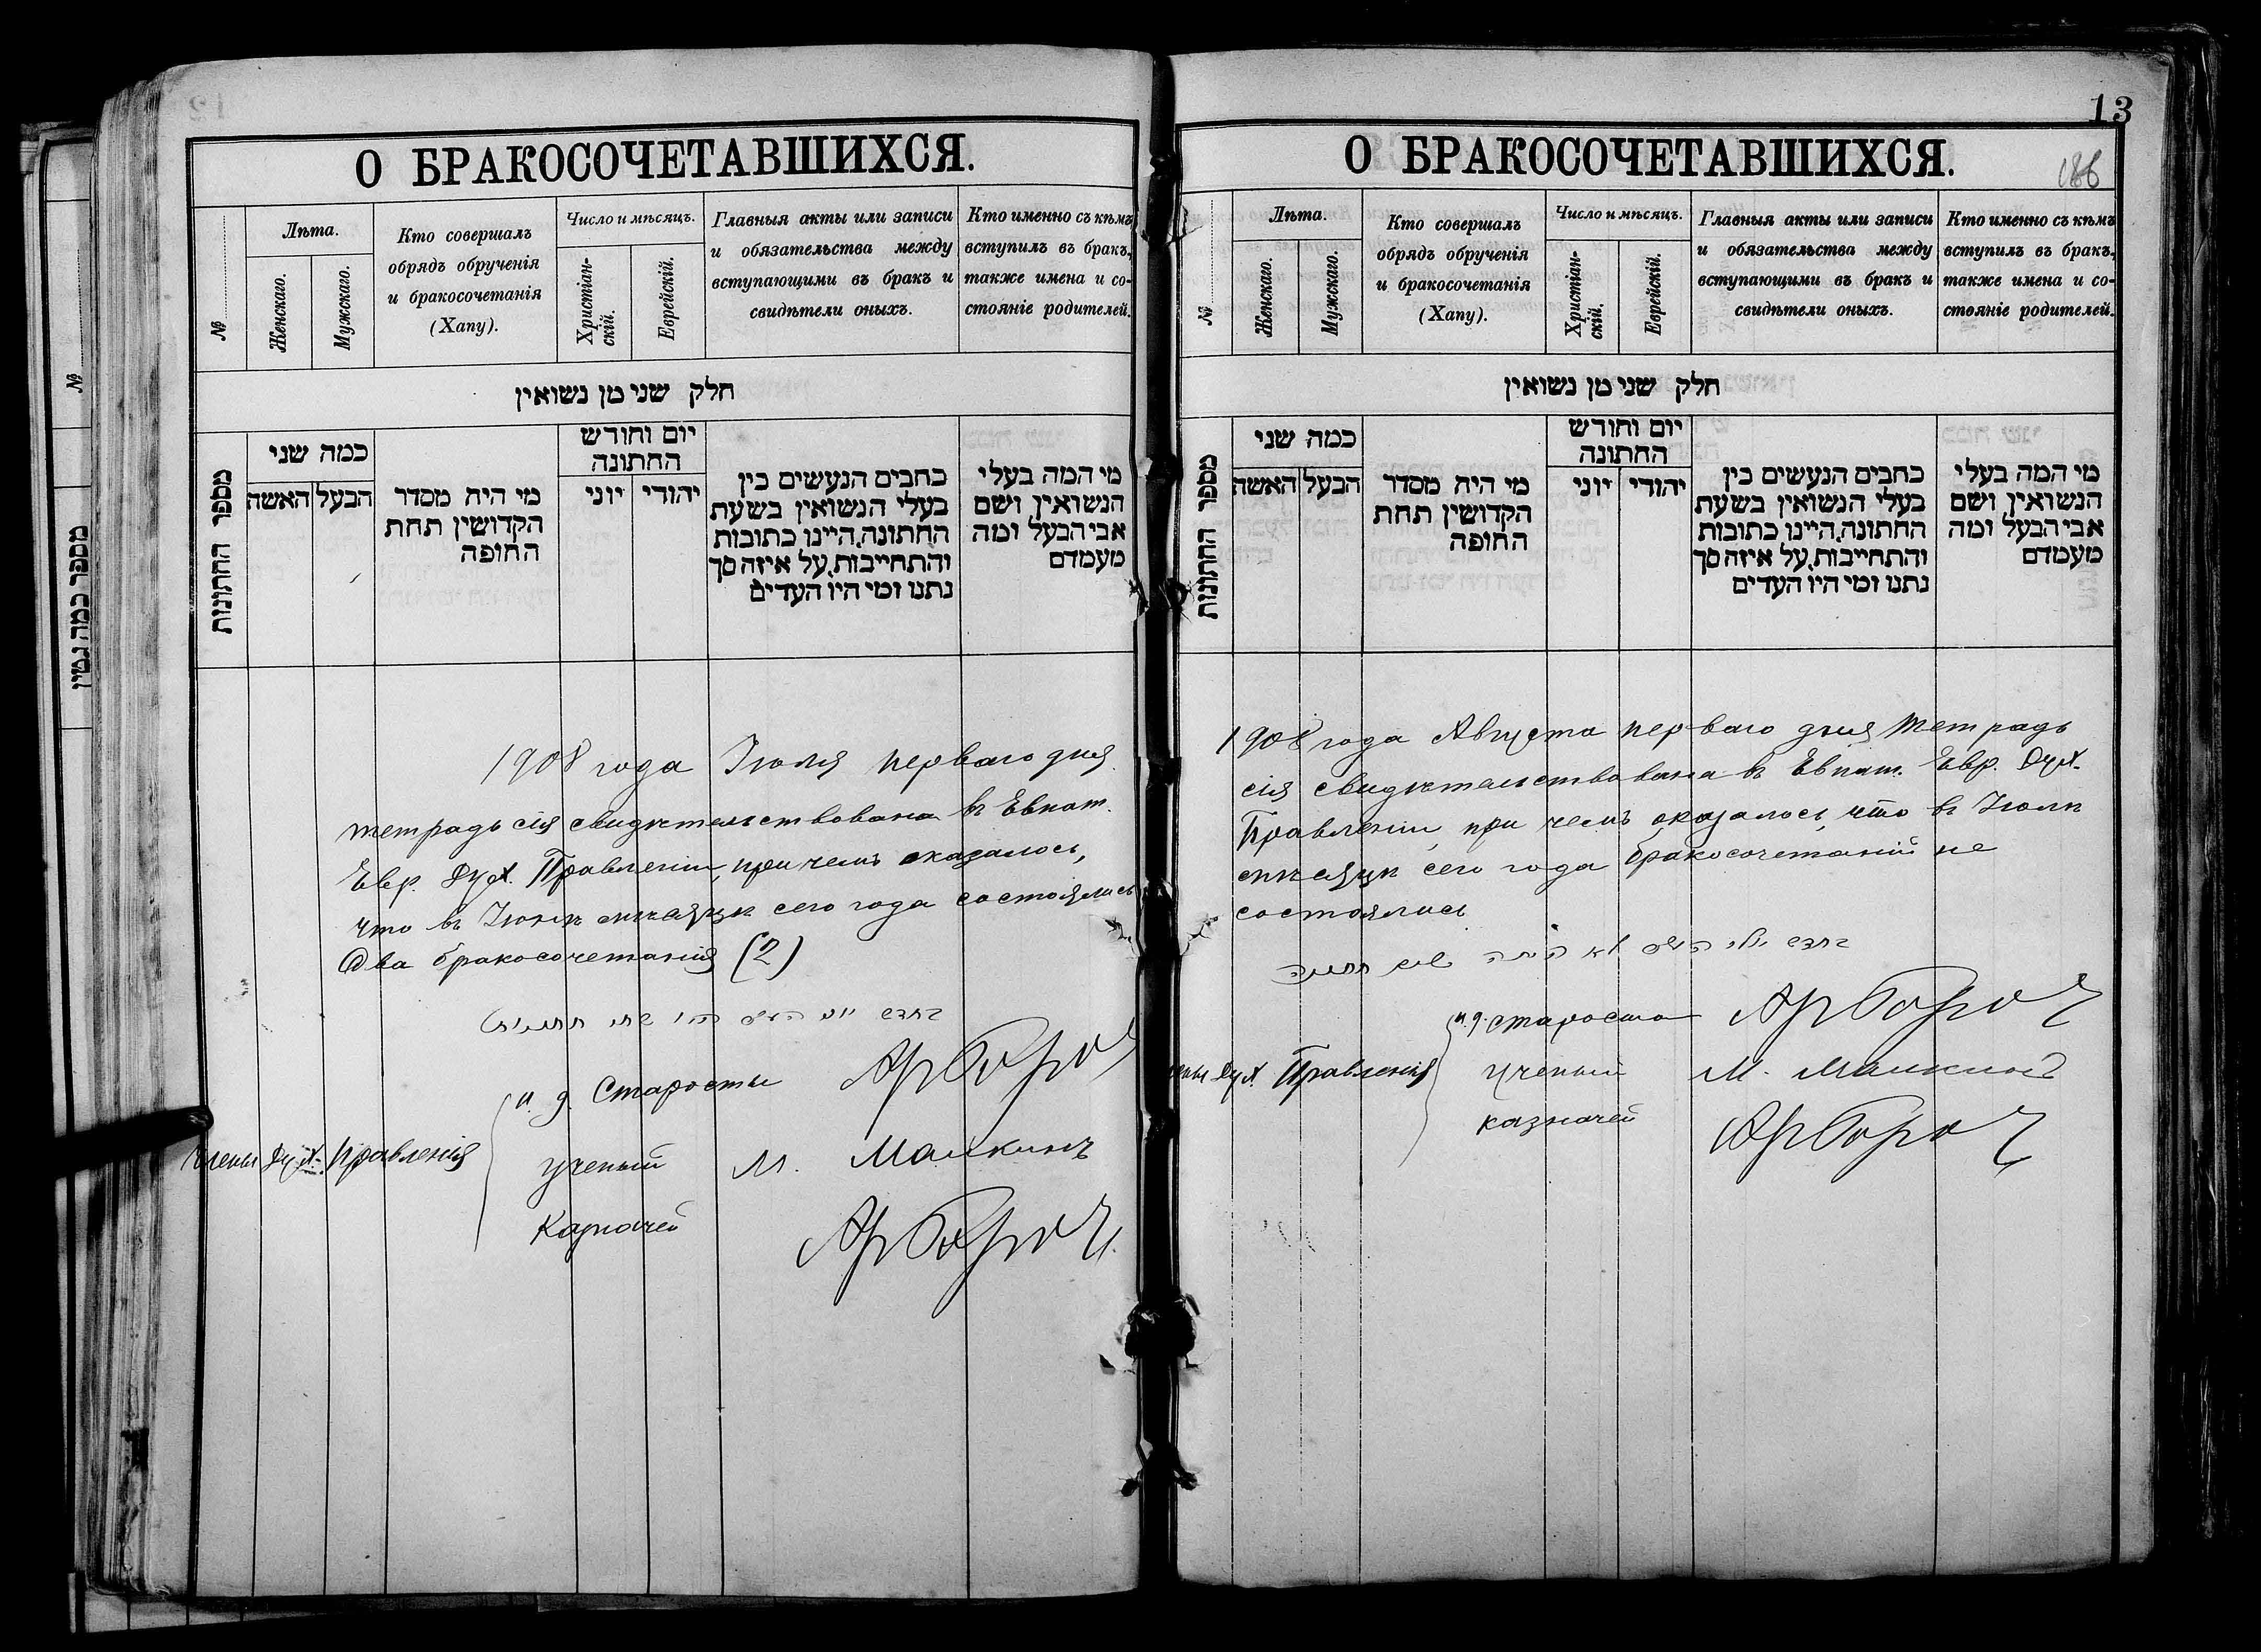 О БРАКОСОЧЕТАВШИХСЯ.
№
Лѣта.
Женскаго.
Мужскаго.
Кто совершалъ
обрядъ обрученія
и бракосочетанія
(Хапу).
Число и мѣсяцъ.
Христіан-
скій.
Еврейскій.
Главныя акты или записи
и обязательства между
вступающими въ бракъ и
свидѣтели оныхъ.
Кто именно съ кѣмъ
вступилъ въ бракъ,
также имена и со-
стояніе родителей.
חלק שני מן נשואין
מספר החתונות
כמה שני
הבעל האשה
מי היה מסדר
הקדושין תחת
החופה
יום וחודש
החתונה
יהודי יוני
כחבים הנעשים בין
בעלי הנשואין בשעת
החתונה, היינו כתובות
והתחייבות, על איזה סך
נתנו ומי היו העדים
מי המה בעלי
הנשואין, ושם
אבי הבעל ומה
מעמדם
1908 года Іюля перваго дня
тетрадь сія свидѣтельствована въ Евпат.
Евр. Дух. Правленіи, при чемъ оказалось,
что въ Іюнѣ мѣсяцѣ сего года состоялись
Два бракосочетанія (2)
Члены Дух. Правленія
и. д. Старосты
ученый М. Малкинъ
Казначей
13
О БРАКОСОЧЕТАВШИХСЯ.
№
Лѣта.
Женскаго.
Мужскаго.
Кто совершалъ
обрядъ обрученія
и бракосочетанія
(Хапу).
Число и мѣсяцъ.
Христіан-
скій.
Еврейскій.
Главныя акты или записи
и обязательства между
вступающими въ бракъ и
свидѣтели оныхъ.
Кто именно съ кѣмъ
вступилъ въ бракъ,
также имена и со-
стояніе родителей.
חלק שני מן נשואין
מספר החתונות
כמה שני
הבעל האשה
מי היה מסדר
הקדושין תחת
החופה
יום וחודש
החתונה
יהודי יוני
כחבים הנעשים בין
בעלי הנשואין בשעת
החתונה, היינו כתובות
והתחייבות, על איזה סך
נתנו ומי היו העדים
מי המה בעלי
הנשואין, ושם
אבי הבעל ומה
מעמדם
1908 года Августа перваго дня тетрадь
сія свидѣтельствована въ Евпат. Евр. Дух.
Правленіи, при чемъ оказалось, что въ Іюлѣ
мѣсяцѣ сего года бракосочетаній не
состоялись
Дух. Правленія
и. д. старосты
ученый М. Малкинъ
казначей